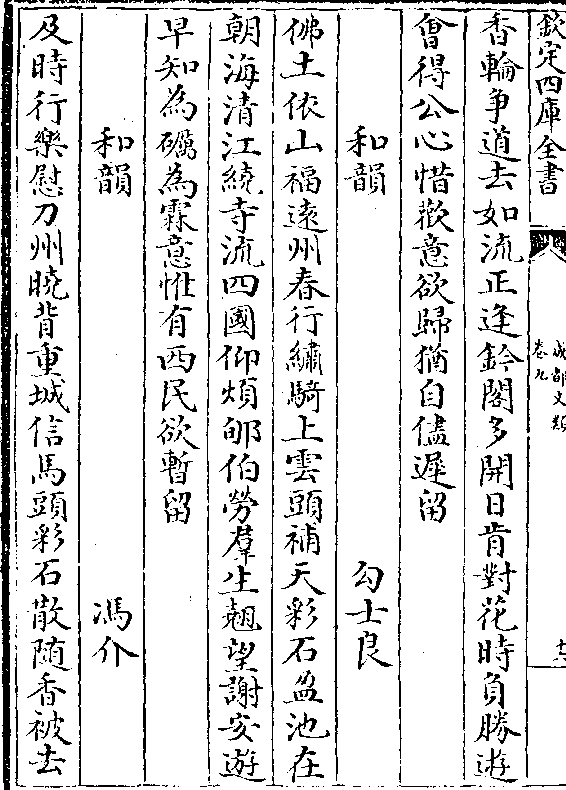 欽定四庫全書
成都文類
卷九
十二
香輪爭道去如流正逢鈐閣多開日肯對花時負勝遊
㑹得公心惜歡意欲歸猶自儘遲留
和韻 勾士良
佛土依山福逺州春行繡騎上雲頭補天彩石盈池在
朝海清江繞寺流四國仰煩郇伯勞羣生翹望謝安遊
早知為礪為霖意惟有西民欲暫留
和韻 馮介
及時行樂慰刀州曉背重城信馬頭彩石散随香被去